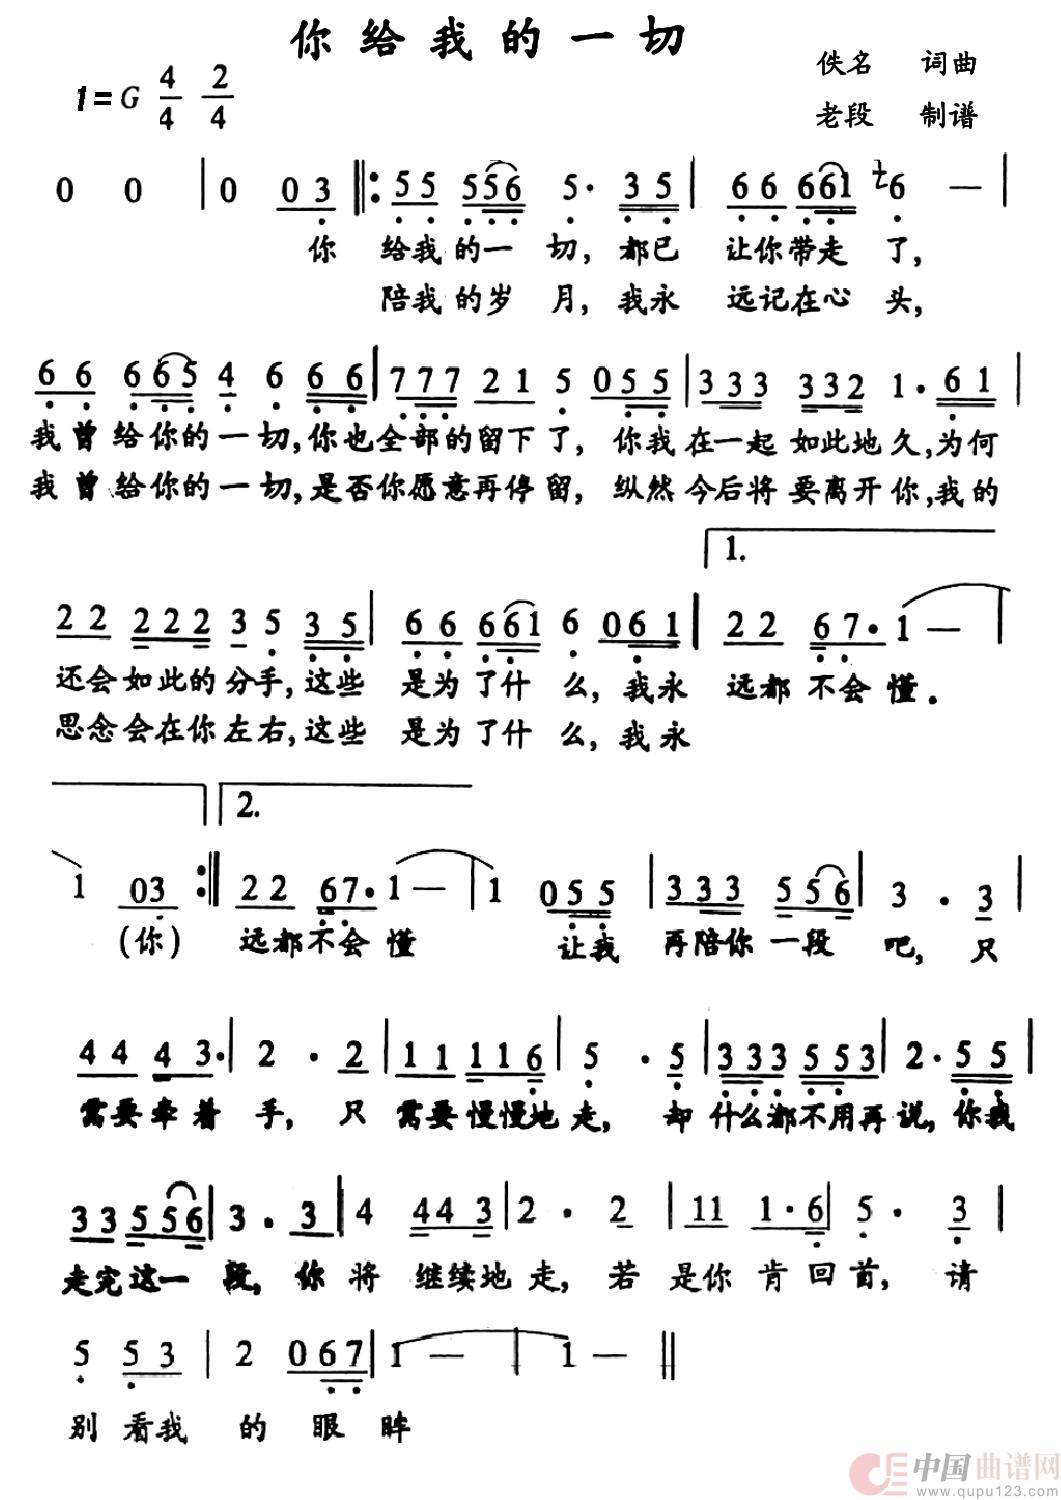 你给我的一切
佚名 词曲
1=G 4/4 2/4
老段 制谱
0 0 | 0 0 3 |: 5 5 5 5 6 5· 3 5 | 6 6 6 6 1 7 6 — |
你 给我的一 切, 都已 让你带走 了,
陪我的岁 月, 我永 远记在心 头,
6 6 6 6 5 4 6 6 6 | 7 7 7 2 1 5 0 5 5 | 3 3 3 3 3 2 1· 6 1 |
我曾给你的一切,你也全部的留下了, 你我在一起 如此地久,为何
我曾给你的一切,是否你愿意再停留, 纵然今后将要离开你,我的
1.
2 2 2 2 2 3 5 3 5 | 6 6 6 6 1 6 0 6 1 | 2 2 6 7· 1 — |
还会如此的分手,这些 是为了什么, 我永 远都不会懂.
思念会在你左右,这些 是为了什么, 我永
2.
1 0 3 :| 2 2 6 7· 1 — | 1 0 5 5 | 3 3 3 5 5 6 | 3 · 3 |
(你) 远都不会懂 让我 再陪你一段 吧, 只
4 4 4 3· | 2 · 2 | 1 1 1 1 6 | 5 · 5 | 3 3 3 5 5 3 2· 5 5 |
需要牵着 手, 只 需要慢慢地走, 却什么都不用再说,你我
3 3 5 5 6 | 3 · 3 | 4 4 4 3 | 2 · 2 | 1 1 1·6 | 5 · 3 |
走完这一 段, 你 将 继续地走, 若 是你肯回首, 请
5 5 3 | 2 0 6 7 | 1 — | 1 — ||
别 看我 的 眼眸
中国曲谱网
www.qupu123.com